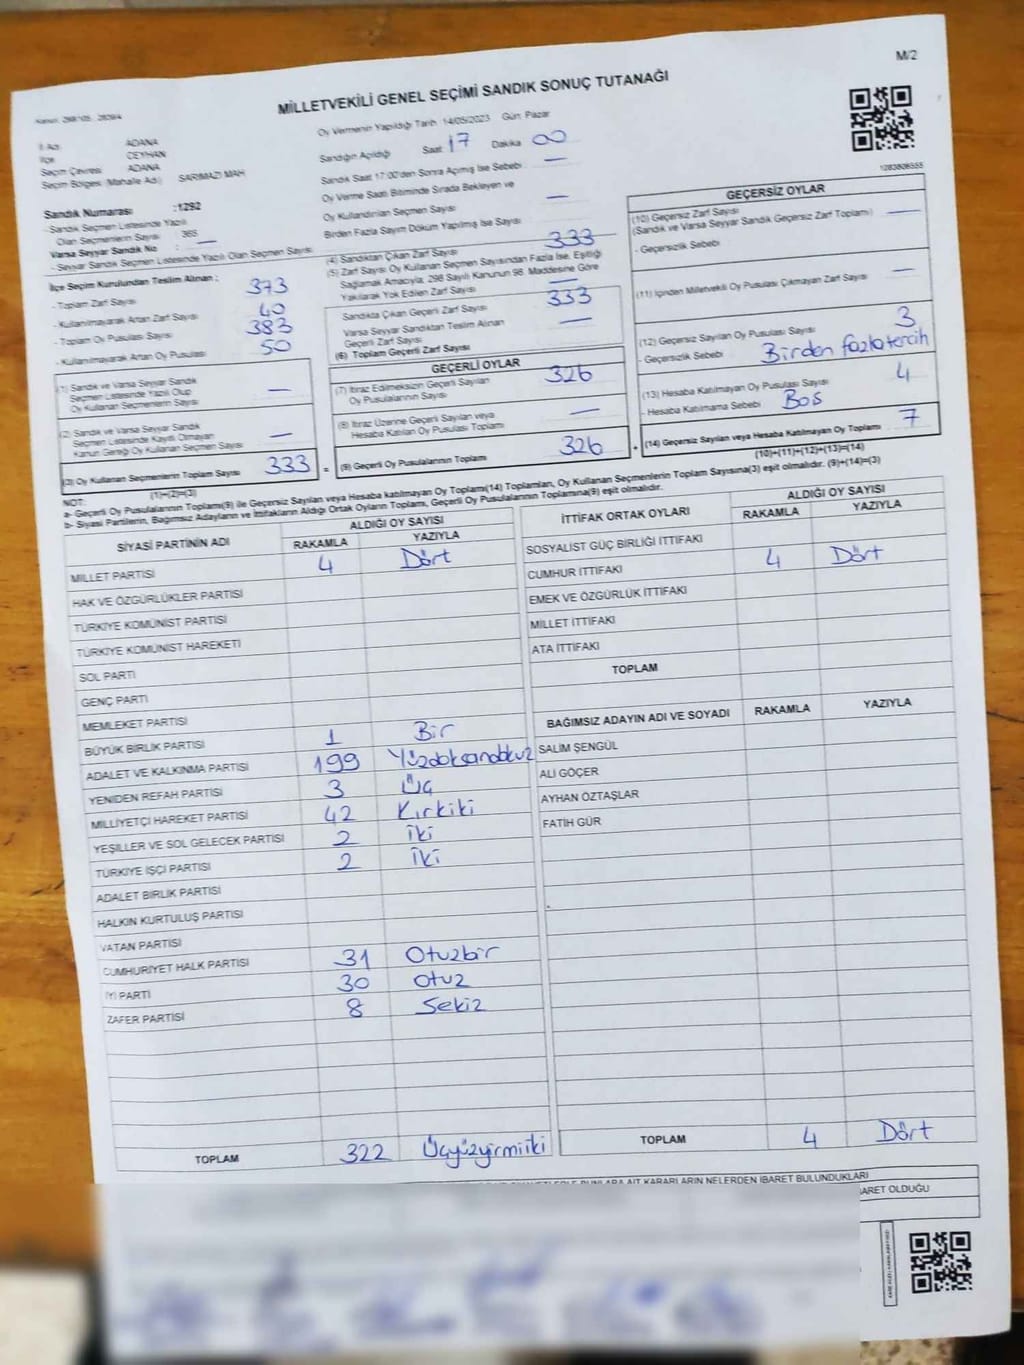 M/2
MİLLETVEKİLİ GENEL SEÇİMİ SANDIK SONUÇ TUTANAĞI
İl Adı : ADANA
İlçe : CEYHAN
Seçim Çevresi : ADANA
Seçim Bölgesi (Mahalle Adı) SARIMAZI MAH
Sandık Numarası :1292
- Sandık Seçmen Listesinde Yazılı
Olan Seçmenlerin Sayısı : 365
Varsa Seyyar Sandık No : —
- Seyyar Sandık Seçmen Listesinde Yazılı Olan Seçmen Sayısı:
Oy Vermenin Yapıldığı Tarih 14/05/2023 Gün: Pazar
Sandığın Açıldığı Saat 17 Dakika 00
Sandık Saat 17:00'den Sonra Açılmış İse Sebebi —
Oy Verme Saati Bitiminde Sırada Bekleyen ve
Oy Kullandırılan Seçmen Sayısı —
Birden Fazla Sayım Döküm Yapılmış İse Sayısı —
1283806555
İlçe Seçim Kurulundan Teslim Alınan :
- Toplam Zarf Sayısı 373
- Kullanılmayarak Artan Zarf Sayısı 40
- Toplam Oy Pusulası Sayısı 383
- Kullanılmayarak Artan Oy Pusulası 50
(1) Sandık ve Varsa Seyyar Sandık
Seçmen Listesinde Yazılı Olup
Oy Kullanan Seçmenlerin Sayısı —
(2) Sandık ve Varsa Seyyar Sandık
Seçmen Listesinde Kayıtlı Olmayan
Kanun Gereği Oy Kullanan Seçmen Sayısı —
(3) Oy Kullanan Seçmenlerin Toplam Sayısı 333 =
(1)+(2)=(3)
(4) Sandıktan Çıkan Zarf Sayısı 333
(5) Zarf Sayısı Oy Kullanan Seçmen Sayısından Fazla İse, Eşitliği
Sağlamak Amacıyla, 298 Sayılı Kanunun 98. Maddesine Göre
Yakılarak Yok Edilen Zarf Sayısı —
Sandıkta Çıkan Geçerli Zarf Sayısı 333
Varsa Seyyar Sandıktan Teslim Alınan
Geçerli Zarf Sayısı —
(6) Toplam Geçerli Zarf Sayısı
GEÇERLİ OYLAR
(7) İtiraz Edilmeksizin Geçerli Sayılan
Oy Pusulalarının Sayısı 326
(8) İtiraz Üzerine Geçerli Sayılan veya
Hesaba Katılan Oy Pusulası Toplamı —
(9) Geçerli Oy Pusulalarının Toplamı 326 +
GEÇERSİZ OYLAR
(10) Geçersiz Zarf Sayısı
(Sandık ve Varsa Seyyar Sandık Geçersiz Zarf Toplamı) —
- Geçersizlik Sebebi
(11) İçinden Milletvekili Oy Pusulası Çıkmayan Zarf Sayısı —
(12) Geçersiz Sayılan Oy Pusulası Sayısı 3
- Geçersizlik Sebebi Birden fazla tercih
(13) Hesaba Katılmayan Oy Pusulası Sayısı 4
- Hesaba Katılmama Sebebi Boş
(14) Geçersiz Sayılan veya Hesaba Katılmayan Oy Toplamı 7
(10)+(11)+(12)+(13)=(14)
NOT:
a- Geçerli Oy Pusulalarının Toplamı(9) ile Geçersiz Sayılan veya Hesaba katılmayan Oy Toplamı(14) Toplamları, Oy Kullanan Seçmenlerin Toplam Sayısına(3) eşit olmalıdır. (9)+(14)=(3)
b- Siyasi Partilerin, Bağımsız Adayların ve İttifakların Aldığı Ortak Oyların Toplamı, Geçerli Oy Pusulalarının Toplamına(9) eşit olmalıdır.
SİYASİ PARTİNİN ADI ALDIĞI OY SAYISI
RAKAMLA YAZIYLA
MİLLET PARTİSİ 4 Dört
HAK VE ÖZGÜRLÜKLER PARTİSİ
TÜRKİYE KOMÜNİST PARTİSİ
TÜRKİYE KOMÜNİST HAREKETİ
SOL PARTİ
GENÇ PARTİ
MEMLEKET PARTİSİ
BÜYÜK BİRLİK PARTİSİ 1 Bir
ADALET VE KALKINMA PARTİSİ 199 Yüzdoksandokuz
YENİDEN REFAH PARTİSİ 3 Üç
MİLLİYETÇİ HAREKET PARTİSİ 42 Kırkiki
YEŞİLLER VE SOL GELECEK PARTİSİ 2 İki
TÜRKİYE İŞÇİ PARTİSİ 2 İki
ADALET BİRLİK PARTİSİ
HALKIN KURTULUŞ PARTİSİ
VATAN PARTİSİ
CUMHURİYET HALK PARTİSİ 31 Otuzbir
İYİ PARTİ 30 Otuz
ZAFER PARTİSİ 8 Sekiz
TOPLAM 322 Üçyüzyirmiiki
İTTİFAK ORTAK OYLARI ALDIĞI OY SAYISI
RAKAMLA YAZIYLA
SOSYALİST GÜÇ BİRLİĞİ İTTİFAKI
CUMHUR İTTİFAKI 4 Dört
EMEK VE ÖZGÜRLÜK İTTİFAKI
MİLLET İTTİFAKI
ATA İTTİFAKI
TOPLAM
BAĞIMSIZ ADAYIN ADI VE SOYADI RAKAMLA YAZIYLA
SALİM ŞENGÜL
ALİ GÖÇER
AYHAN ÖZTAŞLAR
FATİH GÜR
TOPLAM 4 Dört
BUNLARA AİT KARARLARIN NELERDEN İBARET BULUNDUKLARI
OLDUĞU